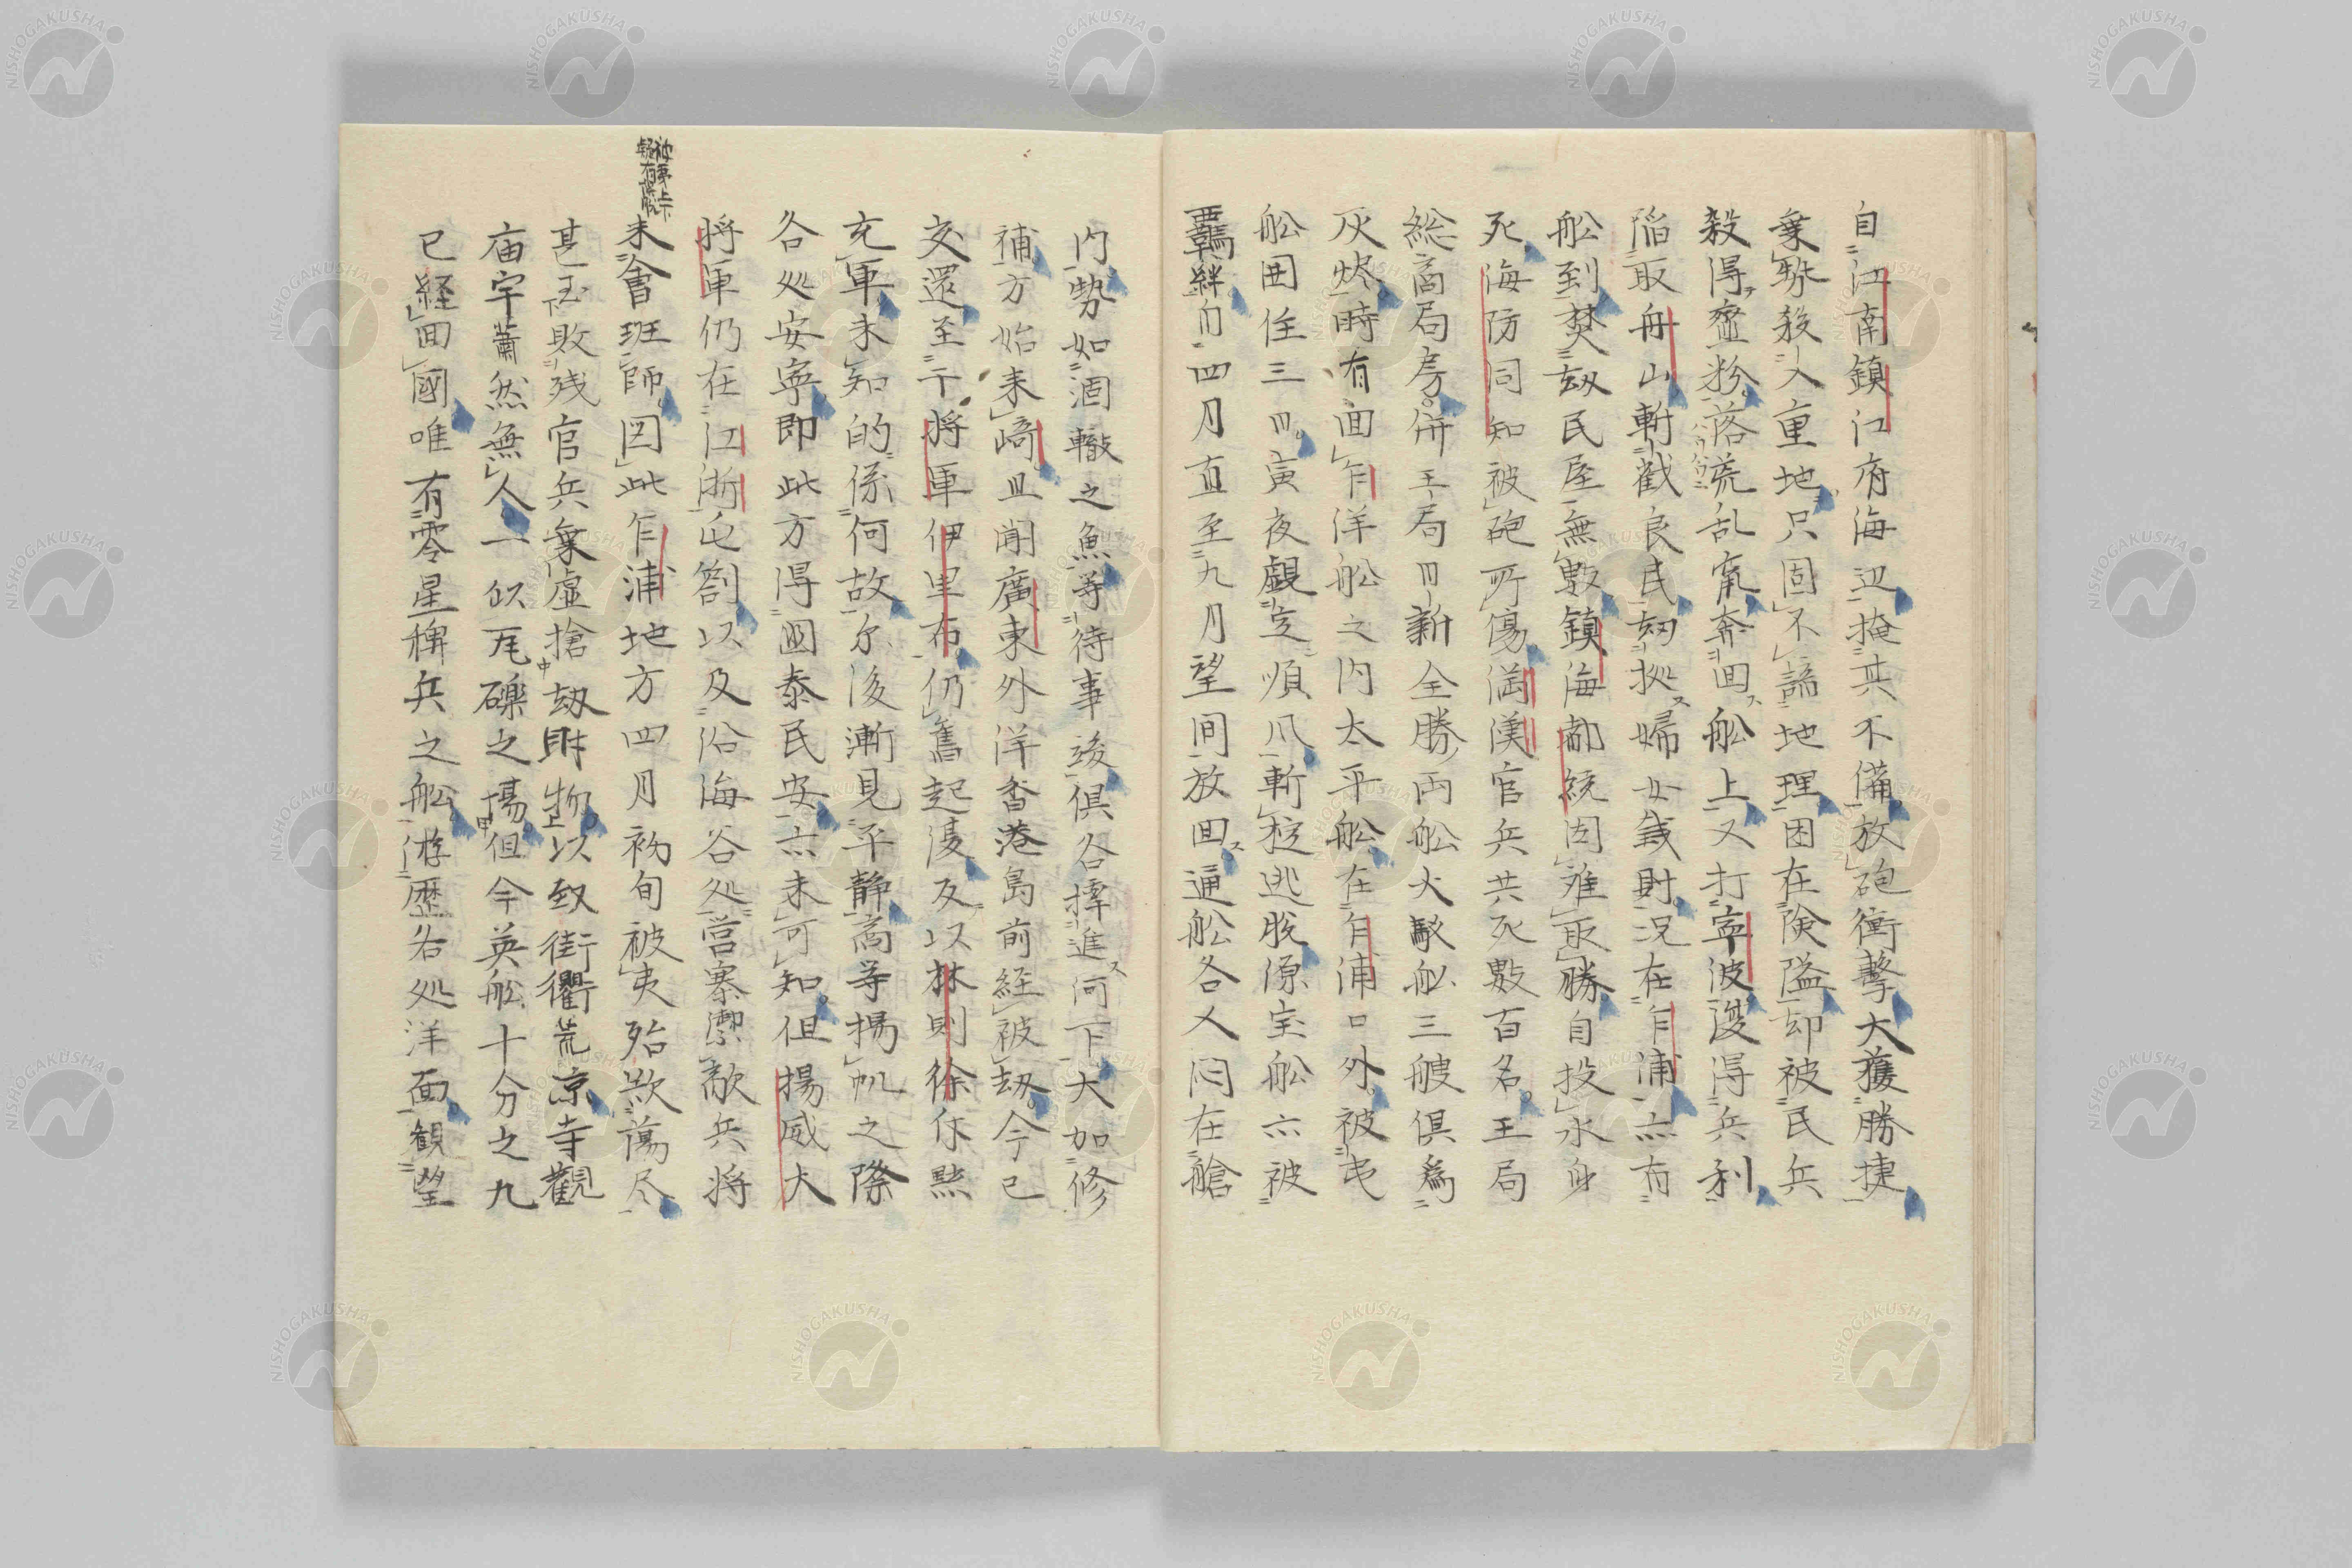 自江南鎮江府海辺掩其不備放砲衝擊大獲勝捷
棄躰殺入重地只因不諳地理困在険隘却被民兵
殺得齏粉落荒乱竄奔回舩上又打寧波澓得兵利
陷取舟山斬戳良民刼拠婦女銭財况在乍浦亦有
舩到焚刼民屋無數鎮海都統因难取勝自投水身
死海防同知被砲所傷満漢官兵共死數百名王局
総商局房併王局卅新全勝両舩火馭舩三艘俱爲
灰烬時有面乍洋舩之内太平舩在乍浦口外被毛
舩囲住三日寅夜覷定順風斬椗逃脱源宝舩亦被
覊絆自四月直至九月望间放回通舩各人闷在艙
内勢如涸轍之魚等待事竣俱各擇進河下大加修
補方始来﨑且闻廣東外洋香港島前経被刼今已
交還至于将軍伊里布仍舊起復及以林則徐你黙
充軍未知的係何故尔後漸見平静商等揚帆之際
各処安寧即此方得國泰民安亦未可知但揚威大
将軍仍在江浙屯劄以及沿海各処営寨禦敵兵将
未會班師因此乍浦地方四月初旬被夷殆欺蕩尽
甚至敗残官兵棄虚搶刼財物以致街衢荒凉寺觀
庙宇蕭然無人一似瓦礫之場但今英舩十分之九
已経回國唯有零星稗兵之舩游歴各処洋面観望